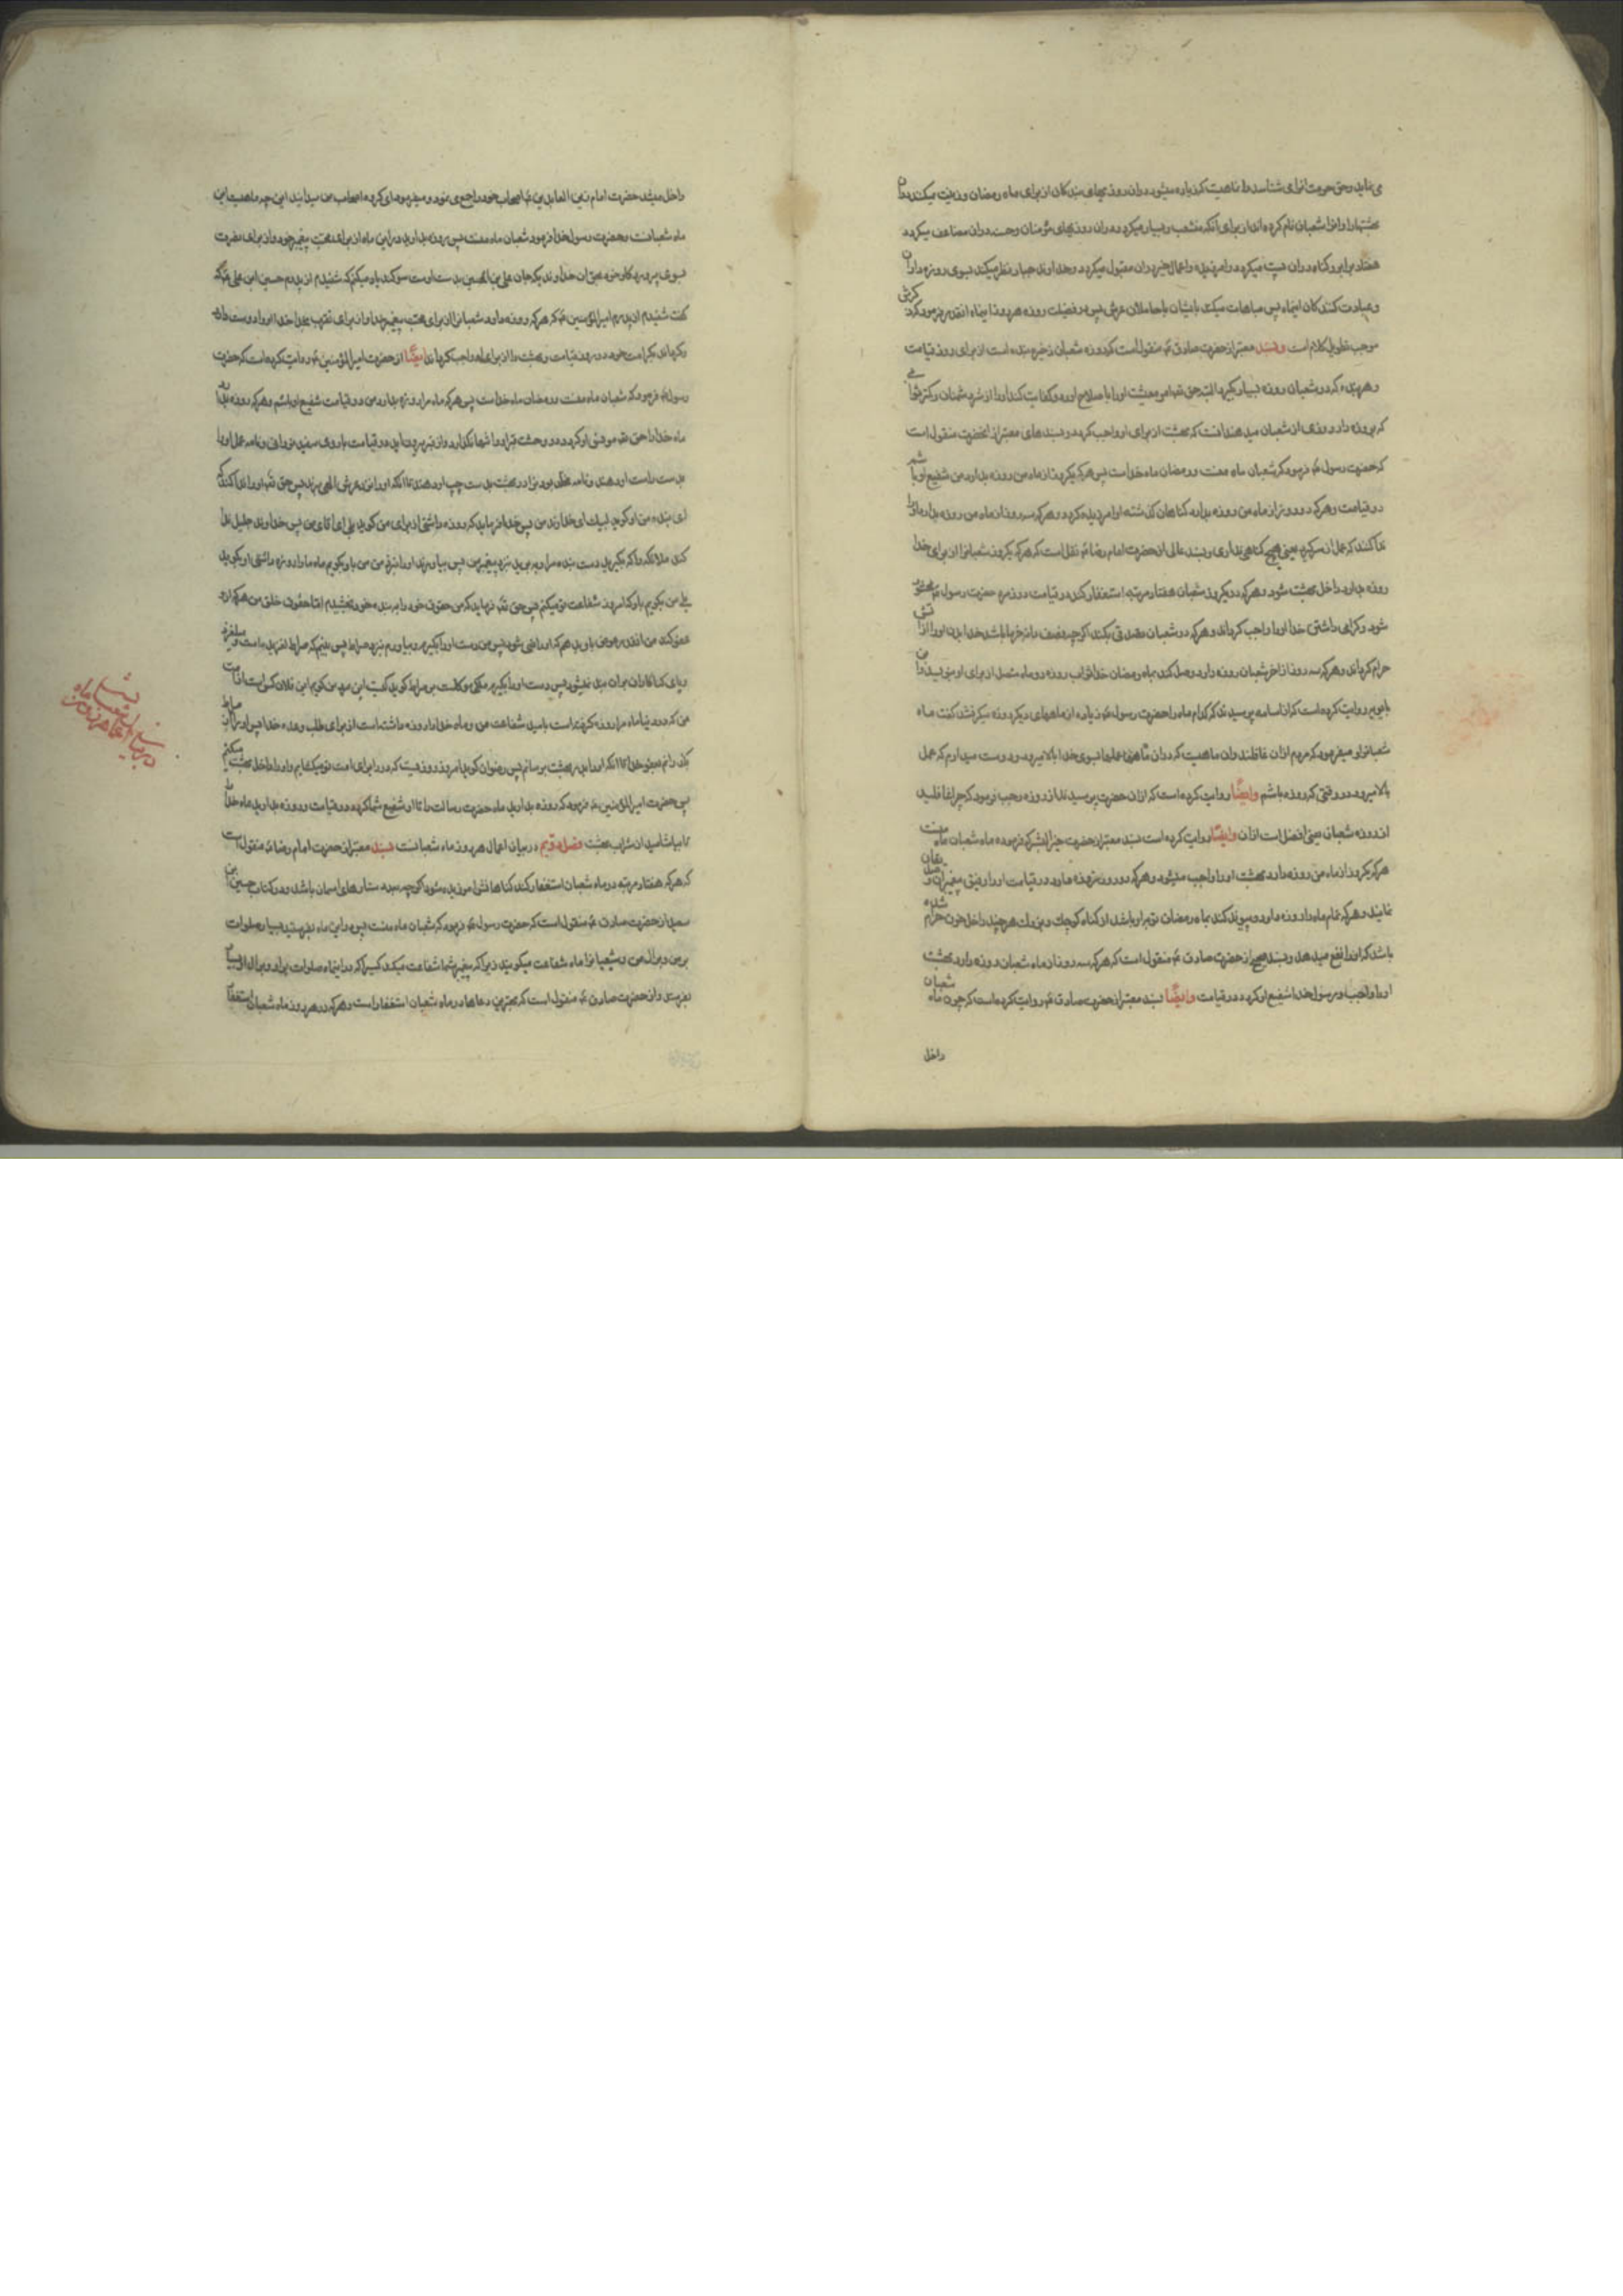 می نماید و حق حرمت انرا می شناسد و ماهیست که زیاده میشود در ان روزیهای بندگان از برای ماه رمضان و زینت میکند در ان
بهشتها را و انرا شعبان نام کرده اند از برای انکه منشعب و بسیار میکردد در ان روزیهای مؤمنان و حسنه در ان مضاعف میکردد
هفتاد برابر و کناه در ان پست میکردد و امرزیده و اعمال خیر در ان مقبول میکردد و خداوند جبار نظر میکند بسوی روزه داران
و عبادت کنندکان اینماه پس مباهات میکند بایشان با حاملان عرش پس در فضیلت روزه هر روز اینماه انقدر فرمود که ذکرش
موجب تطویل کلام است و بسند معتبر از حضرت صادق ع منقول است که روزه شعبان ذخیره بنده است از برای روز قیامت
و هر بنده که در شعبان روزه بسیار بکیرد البته حق تعالی امر معیشت او را باصلاح اورد و کفایت کند او را از شر دشمنان و کمتر ثوابی
که بروزه دار روزی از شعبان میدهند انست که بهشت از برای او واجب کردد و بسندهای معتبر از انحضرت منقول است
که حضرت رسول ع فرمود که شعبان ماه منست و رمضان ماه خداست پس هر که یکروز از ماه من روزه بدارد من شفیع او باشم
در قیامت و هر که دو روز از ماه من روزه بدارد کناهان کذشته او امرزیده کردد و هر که سه روز از ماه من روزه بدارد او را
ندا کنند که عمل از سر کیر یعنی هیچ کناهی نداری و بسند عالی از حضرت امام رضا ع نقل است که هر که یکروز شعبان را از برای خدا
روزه بدارد داخل بهشت شود و هر که در یکروز شعبان هفتاد مرتبه استغفار کند در قیامت در زمره حضرت رسول ع محشور
شود و کرامی داشتن خدا او را واجب کرداند و هر که در شعبان تصدقی بکند اکرچه بنصف دانه خرما باشد خدا بدن او را از آتش
حرام کرداند و هر که سه روز از اخر شعبان روزه دارد و وصل کند بماه رمضان خدا ثواب روزه دو ماه متصل از برای او بنویسد و ابن
بابویه روایت کرده است که از اسامه پرسیدند که کدام ماه را حضرت رسول ع زیاده از ماههای دیکر روزه میکرفتند کفت ماه
شعبان را و میفرمود که مردم از ان غافلند و ان ماهیست که در ان ماه عملها بسوی خدا بالا میرود و دوست میدارم که عمل
بالا میرود در وقتی که روزه باشم و ایضًا روایت کرده است که از ان حضرت پرسیدند از روزه رجب فرمود که چرا غافلید
از روزه شعبان یعنی افضل است از ان و ایضًا روایت کرده است بسند معتبر از حضرت خیر البشر که فرموده ماه شعبان ماه منست
هر که یکروز از ماه من روزه دارد بهشت او را واجب میشود و هر که دو روز روزه دارد در قیامت او را رفیق پیغمبران و صدیقان
نمایند و هر که تمام ماه را روزه دارد و پیوند کند بماه رمضان توبه او باشد از کناه کوچک و بزرک هر چند داخل خون حرام شده
باشد که او را نفع میدهد و بسند صحیح از حضرت صادق ع منقول است که هر که سه روز از ماه شعبان روزه دارد بهشت
او را واجب و رسول خدا شفیع او کردد در قیامت و ایضًا بسند معتبر از حضرت صادق ع روایت کرده است که چون ماه شعبان
داخل
داخل میشد حضرت امام زین العابدین ع اصحاب خود را جمع می نمود و میفرمود ای کروه اصحاب من میدانید این چه ماهست این
ماه شعبانست و حضرت رسول خدا فرمود شعبان ماه منست پس روزه بدارید در این ماه از برای محبت پیغمبر خود و از برای تقرب
بسوی پروردکار خود بحق ان خداوندیکه جان علی بن الحسین بدست اوست سوکند یاد میکنم که شنیدم از پدرم حسین ابن علی ع که
کفت شنیدم از پدرم امیر المؤمنین ع که هر که روزه دارد شعبان را از برای محبت پیغمبر خدا و از برای تقرب بخدا خدا او را دوست دارد
و کرداند بکرامت خود در روز قیامت و بهشت را از برای او واجب کرداند ایضًا از حضرت امیر المؤمنین ع روایت کرده است که حضرت
رسول ع فرمود که شعبان ماه منست و رمضان ماه خداست پس هر که ماه مرا روزه بدارد من در قیامت شفیع او باشم و هر که روزه بدارد
ماه خدا را حق تعالی مونس او کردد در وحشت قبر او را تنها نکذارد و از قبر بیرون اید در قیامت با روی سفید نورانی و نامه عمل او را
بدست راست او دهند و نامه مخلد بودن او در بهشت بدست چپ او دهند تا انکه او را نزد عرش الهی برند پس حق تعالی او را ندا کند که
ای بنده من او کوید لبیک ای خداوند من پس خدا فرماید که روزه داشتی از برای من کوید بلی ای اقای من پس خداوند جلیل ندا
کند ملائکه را که بکیرید دست بنده مرا و ببرید نزد پیغمبر من پس بیاورند او را نزد من من باو بکویم ماه مرا روزه داشتی او بکوید
بلی من بکویم باو که امروز شفاعت تو میکنم پس حق تعالی فرماید که من حقوق خود را به بنده خود بخشیدم اما حقوق خلق من هر که از او
عفو کند من انقدر عوض باو بدهم که او راضی شود پس من دست او را بکیرم و بیاورم نزد صراط پس بینم که صراط لغزنده است و
پای کناهکاران بر ان بند نمیشود پس دست او را بکیرم ملکی موکلست بر صراط کوید کیست این من کویم این فلان کس است از امت
من که در دنیا ماه مرا روزه کرفته است بامید شفاعت من و ماه خدا را روزه داشته است از برای طلب وعده خدا پس او را از صراط
بکذرانم بعفو خدا تا انکه او را بدر بهشت برسانم پس رضوان کوید امروز روزیست که در را برای امت تو میکشایم و او را داخل بهشت میکنم
پس حضرت امیر المؤمنین ع فرمود که روزه بدارید ماه حضرت رسالت را تا او شفیع شما کردد در قیامت و روزه بدارید ماه خدا را
تا بیاشامید از شراب بهشت فصل دویم در بیان اعمال هر روز ماه شعبانست بسند معتبر از حضرت امام رضا ع منقول است
که هر که هفتاد مرتبه در ماه شعبان استغفار کند کناهانش امرزیده شود اکرچه بعدد ستارهای اسمان باشد و در کنار حسین بن
سعید از حضرت صادق ع منقول است که حضرت رسول ع فرمود که شعبان ماه منست پس در این ماه بفرستید بسیار صلوات
بر من و بر ال من و شعبان را ماه شفاعت میکویند زیرا که پیغمبر شما شفاعت میکند کسیرا که در اینماه صلوات بر او و بر ال او بسیار
بفرستد و از حضرت صادق ع منقول است که بهترین دعاها در ماه شعبان استغفار است و هر که در هر روز ماه شعبان استغفار